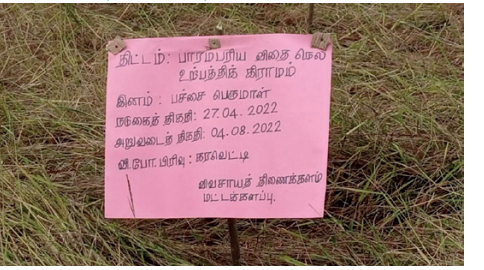 திட்டம்: பாரம்பரிய விதை நெல்
உற்பத்திக் கிராமம்
இனம் : பச்சை பெருமாள்
நடுகைத் திகதி: 27.04.2022
அறுவடைத் திகதி: 04.08.2022
வி.போ.பிரிவு : கரவெட்டி
விவசாயத் திணைக்களம்
மட்டக்களப்பு.